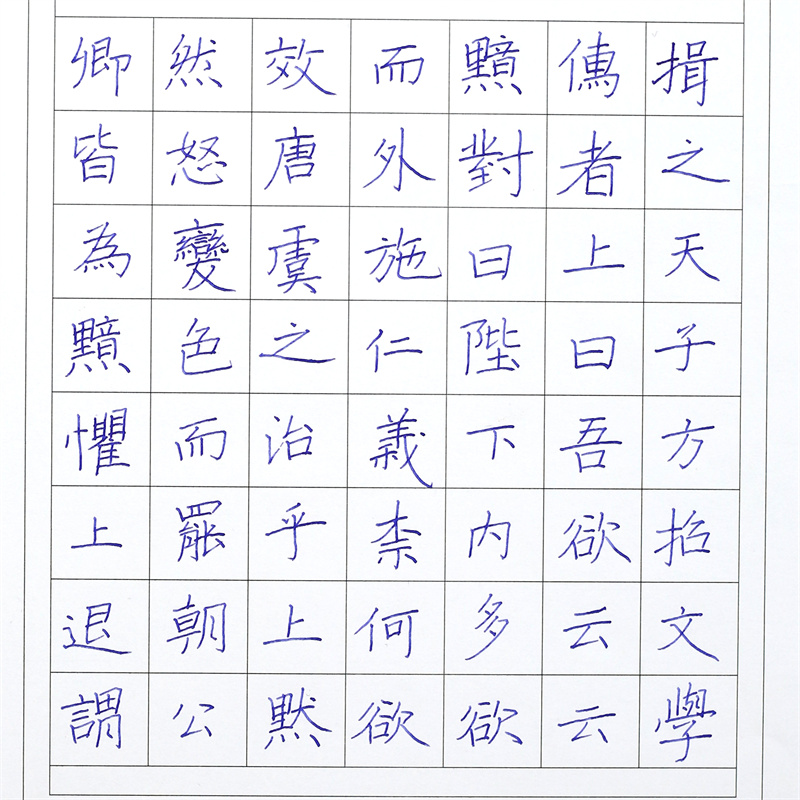 揖之天子方招文學
儒者上曰吾欲云云
黯對曰陛下内多欲
而外施仁義柰何欲
效唐虞之治乎上黙
然怒變色而罷朝公
卿皆為黯懼上退謂